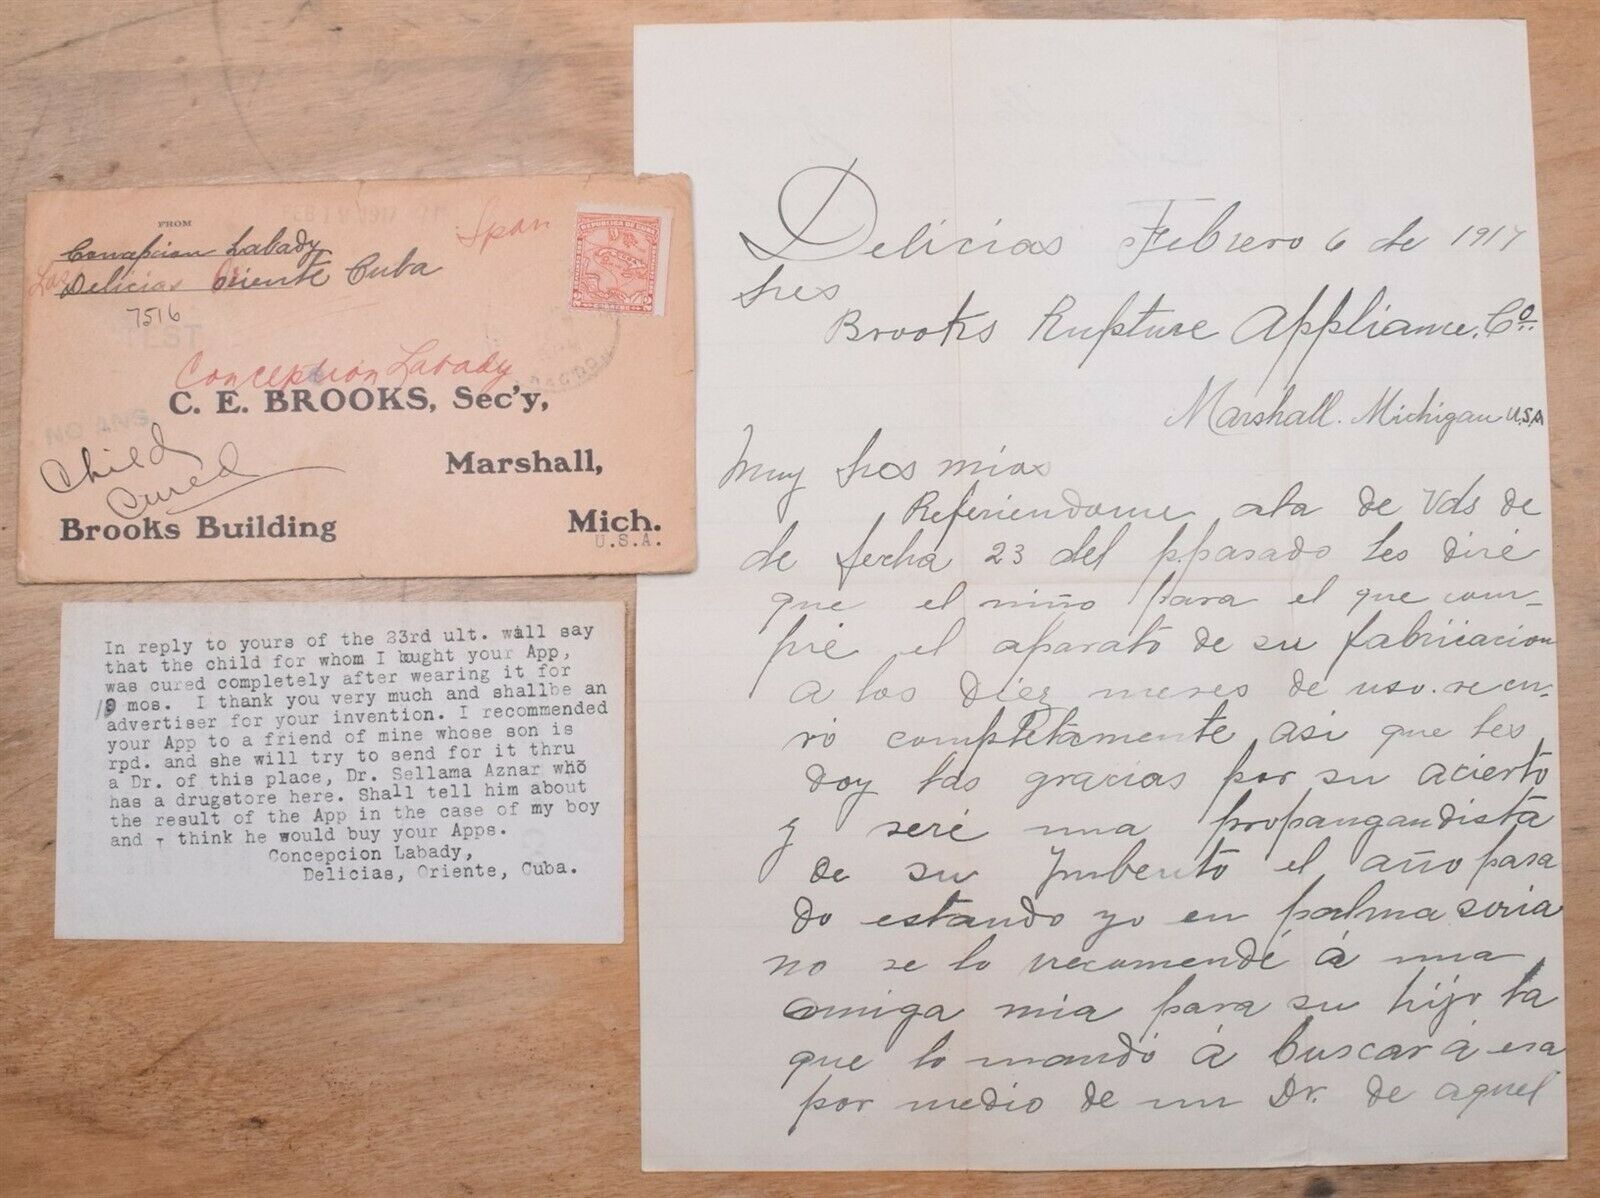 FROM
Concepcion Labady
Delicias Oriente Cuba
7516
Span
REPUBLICA DE CUBA
Conception Labady
C. E. BROOKS, Sec'y,
Marshall,
Child
Cured
Brooks Building
Mich.
U.S.A.
In reply to yours of the 23rd ult. will say
that the child for whom I bought your App,
was cured completely after wearing it for
10 mos. I thank you very much and shallbe an
advertiser for your invention. I recommended
your App to a friend of mine whose son is
rpd. and she will try to send for it thru
a Dr. of this place, Dr. Sellama Aznar who
has a drugstore here. Shall tell him about
the result of the App in the case of my boy
and - think he would buy your Apps.
Concepcion Labady,
Delicias, Oriente, Cuba.
Delicias Febrero 6 de 1917
Sres
Brooks Rupture Appliance. Co.
Marshall. Michigan U.S.A
Muy Sres mios
Refiriendome ala de Vds de
de fecha 23 del p.pasado les diré
que el niño para el que com-
pré el aparato de su fabricacion
a los diez meses de uso. se cu-
ró completamente asi que les
doy las gracias por su acierto
y seré una propangandista
de su Ymbento el año pasa
do estando yo en palma soria
no se lo recomendé á una
amiga mia para su hijo la
que lo mandó á buscar á esa
por medio de un Dr. de aquel